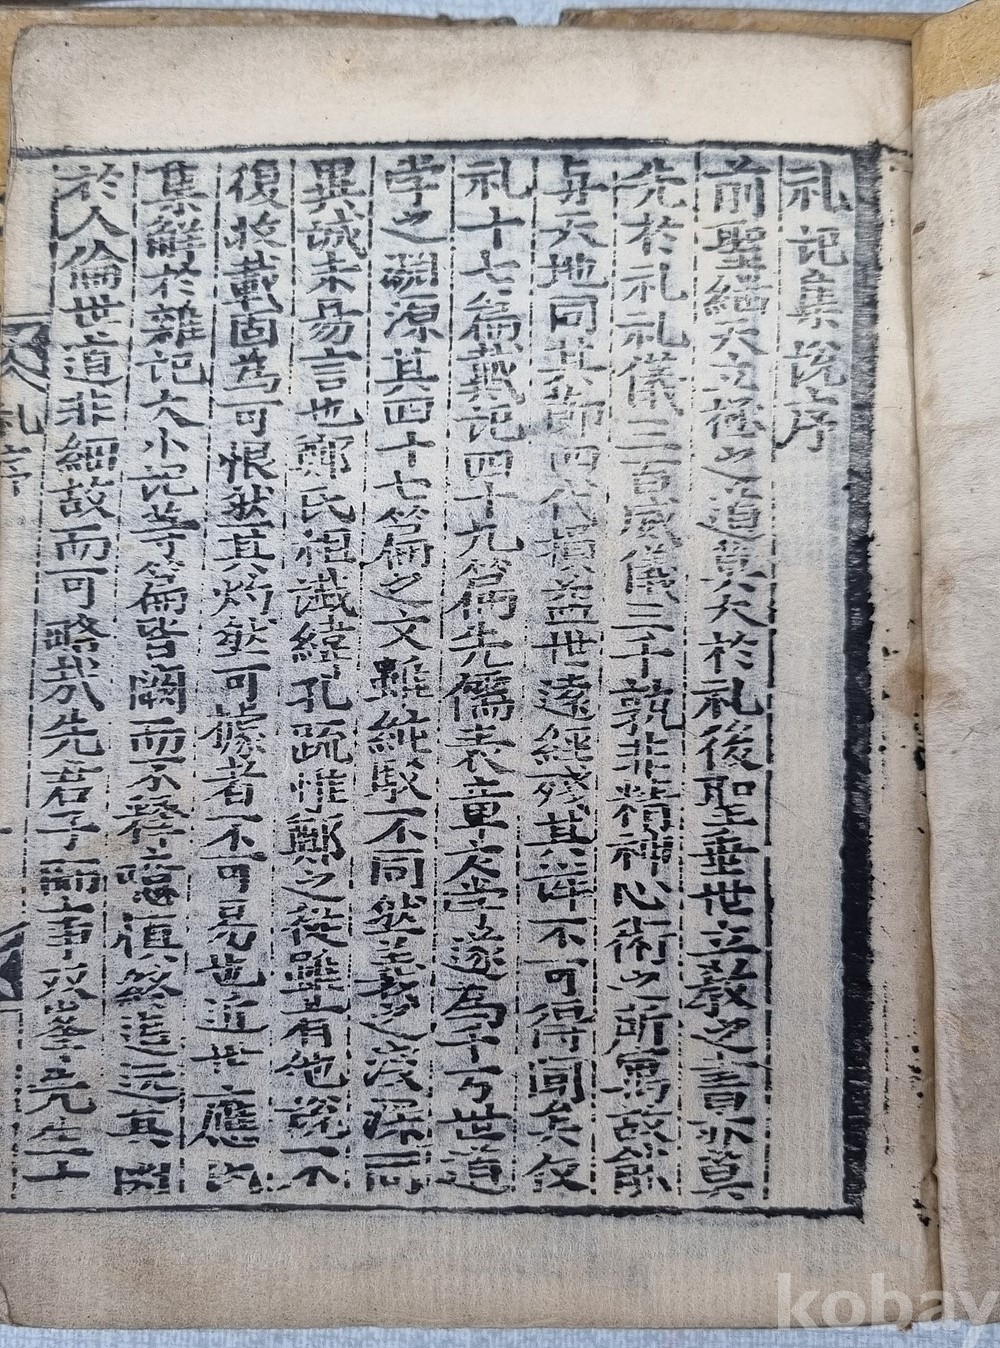 礼記集說序
前聖繼天立極之道莫大於礼後聖垂世立教之書亦莫
先於礼礼儀三百威儀三千孰非精神心術之所寓故能
与天地同其節四代損益世遠經殘其詳不可得聞矣仪
礼十七篇戴記四十九篇先儒表章大学遂為千万世道
学之淵源其四十七篇之文雖純駁不同然義之淺深同
異誠未易言也鄭氏祖讖緯孔疏惟鄭之從雖有他說不
復收載固為可恨然其灼然可據者不可易也近世應氏
集解於雜記大小記等篇皆闕而不釋噫慎終追远其關
於人倫世道非細故而可略哉先君子師事双峯先生十
礼序
kobay